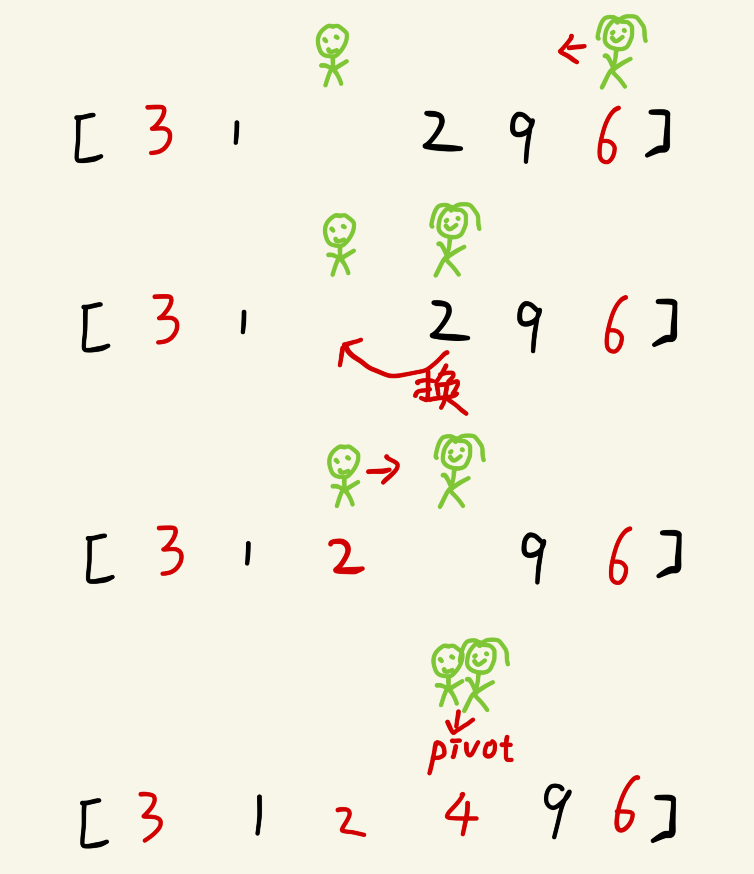 [ 3 1 2 9 6 ]
[ 3 1 2 9 6 ]
换
[ 3 1 2 9 6 ]
pivot
[ 3 1 2 4 9 6 ]